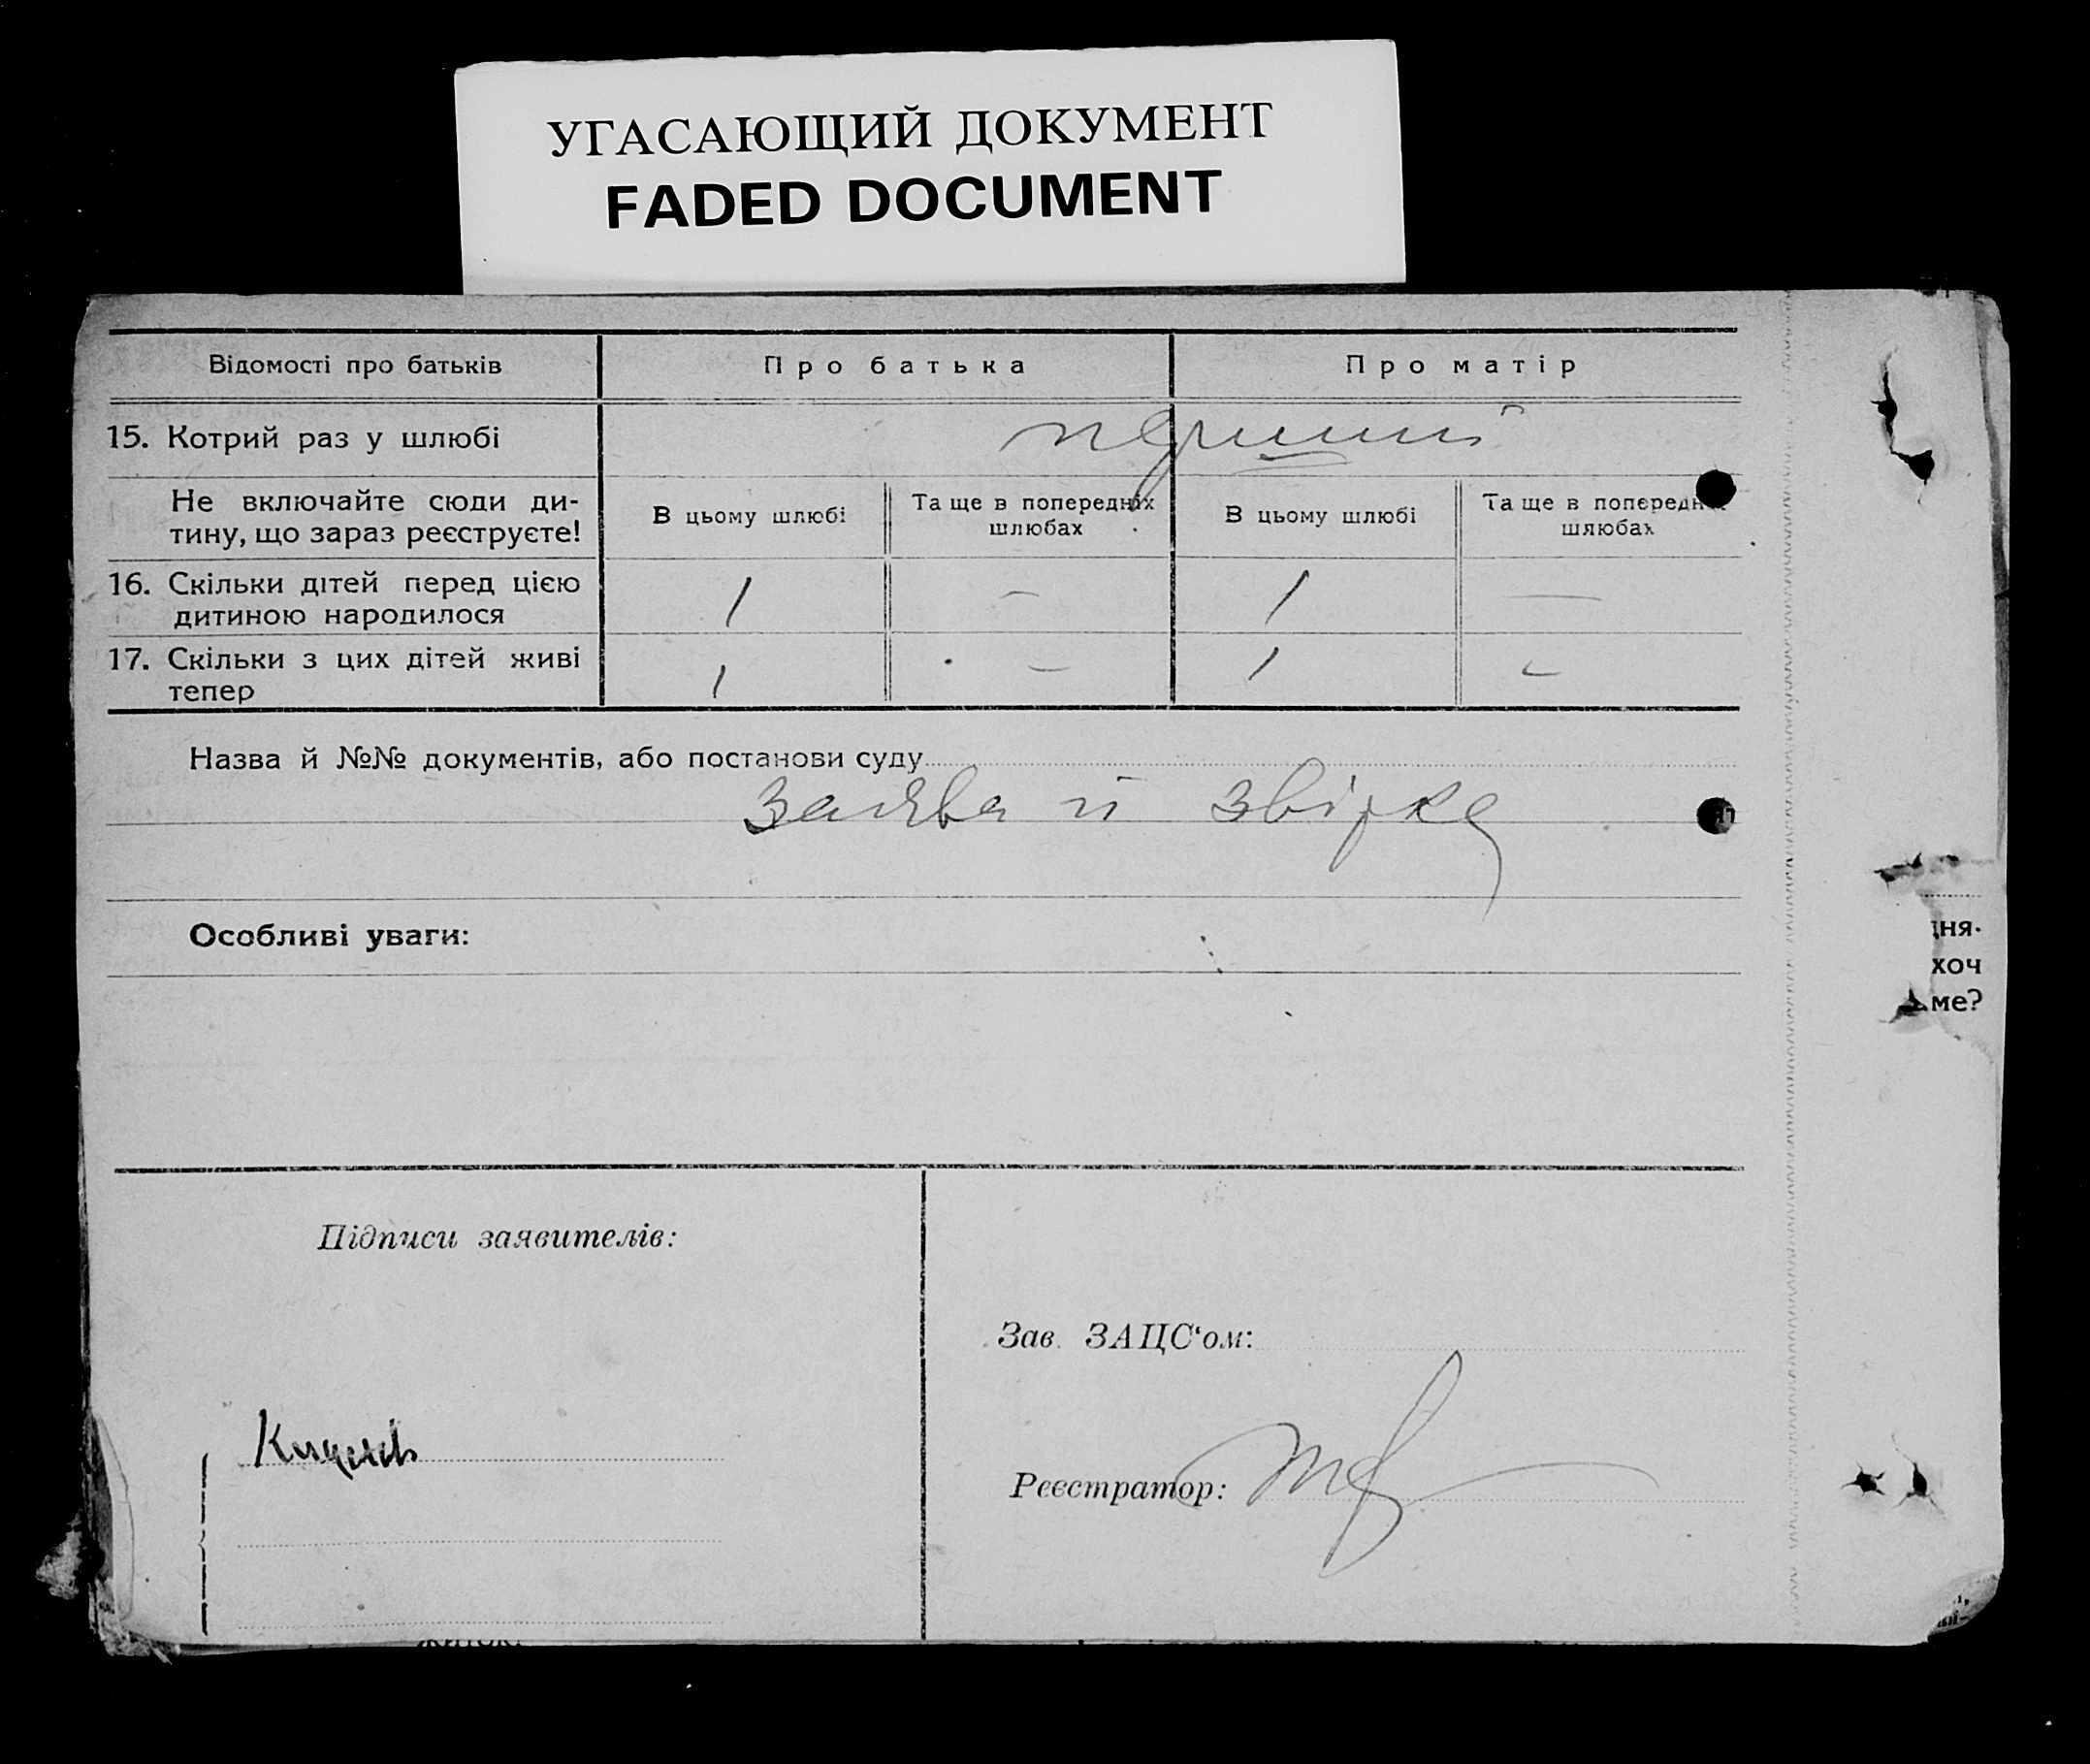 УГАСАЮЩИЙ ДОКУМЕНТ
FADED DOCUMENT
Відомості про батьків
Про батька
Про матір
15. Котрий раз у шлюбі
перший
Не включайте сюди ди-
тину, що зараз реєструєте!
В цьому шлюбі
Та ще в попередніх
шлюбах
В цьому шлюбі
Та ще в попередн
шлюбах
16. Скільки дітей перед цією
дитиною народилося
1 — 1 —
17. Скільки з цих дітей живі
тепер
1 — 1 —
Назва й №№ документів, або постанови суду
заява й звірка
Особливі уваги:
дня-
хоч
ме?
Підписи заявителів:
Зав. ЗАЦС‘ом:
Реєстратор: